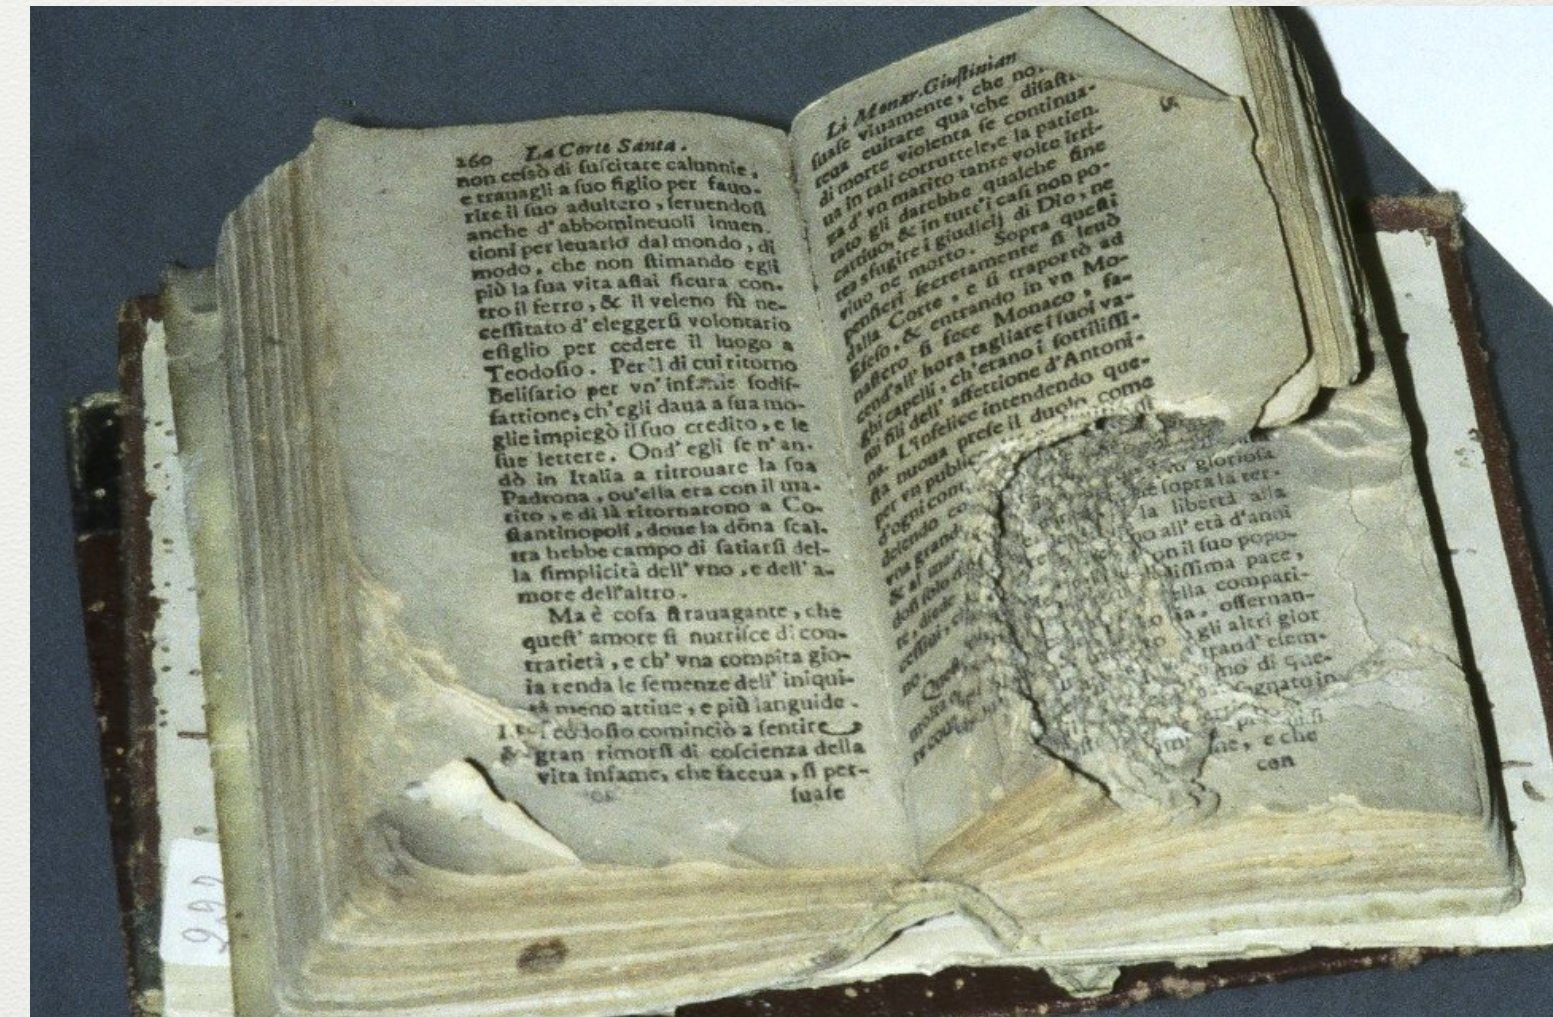 260 La Corte Santa.
non cessò di suscitare calunnie,
e trauagli a suo figlio per fauo-
rire il suo adultero, seruendosi
anche d'abbomineuoli inuen.
tioni per leuarlo dal mondo, di
modo, che non stimando egli
più la sua vita assai sicura con-
tro il ferro, & il veleno fù ne-
cessitato d'eleggersi volontario
esiglio per cedere il luogo a
Teodosio. Per il di cui ritorno
Belisario per vn' infamie sodis-
fattione, ch'egli daua a sua mo-
glie impiegò il suo credito, e le
sue lettere. Ond' egli se n' an.
dò in Italia a ritrouare la sua
Padrona, ou'ella era con il ma-
rito, e di là ritornarono a Co-
stantinopoli, doue la dõna scal-
tra hebbe campo di satiarsi del-
la simplicità dell' vno, e dell' a-
more dell'altro.
Ma è cosa strauagante, che
quest' amore si nutrisce di con-
trarietà, e ch' vna compita gio-
ia renda le semenze dell' iniqui-
tà meno attiue, e più languide.
Teodosio cominciò a sentire
gran rimorsi di coscienza della
vita infame, che faceua, si per-
suase
Li Monar. Giustinian
suase viuamente, che non
teua euitare qua'che disastr
di morte violenta se continua-
ua in tali corruttele, e la patien.
za d' vn marito tante volte irri-
tato gli darebbe qualche fine
cattiuo, & in tutt' i casi non po-
tea sfugire i giudicij di Dio, ne
viuo ne morto. Sopra questi
pensieri secretamente si leuò
dalla Corte, e si traportò ad
Efeso, & entrando in vn Mo-
nastero si fece Monaco, fa-
cend'all' hora tagliare i suoi va-
ghi capelli, ch'erano i sottilissi-
mi fili dell' affettione d'Antoni-
na. L'infelice intendendo que-
sta nuoua prese il duolo come
per vn public
d'ogni cont
dolendo co
vna grand
gloriosa
e sopra la ter-
la libertà alla
all' età d'anni
il suo popo-
issima pace,
ella compari-
offernan-
gli altri gior
rand' esem-
di que-
gnato in
e che
con
222